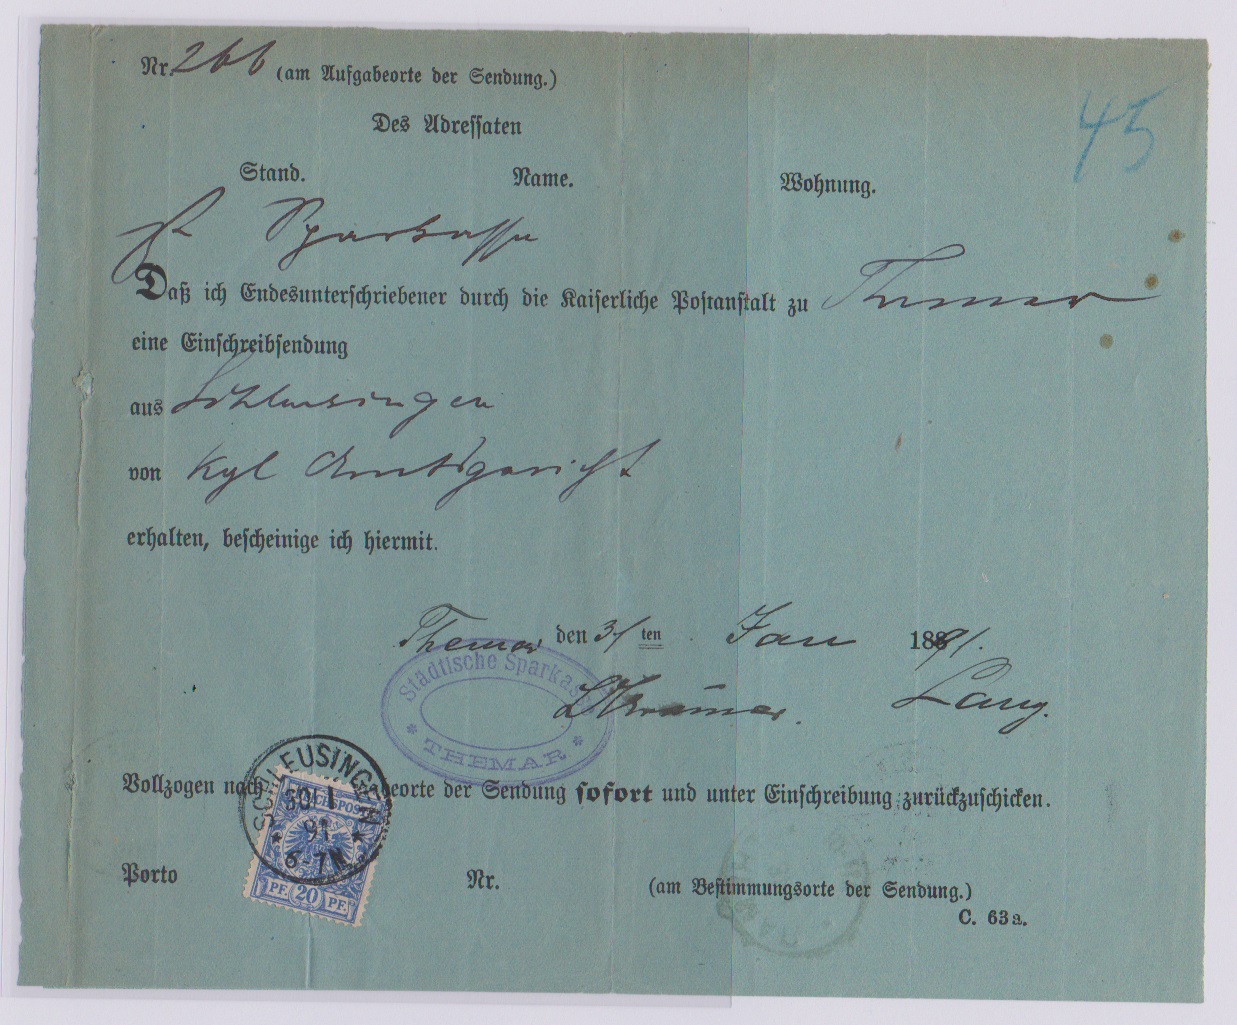 Nr. 266 (am Aufgabeorte der Sendung.)
45
Des Adressaten
Stand. Name. Wohnung.
Sparkasse
Daß ich Endesunterschriebener durch die Kaiserliche Postanstalt zu Themar
eine Einschreibsendung
aus Schleusingen
von Kgl Amtsgericht
erhalten, bescheinige ich hiermit.
Themar den 31 ten Jan 1891.
Städtische Sparkas
THEMAR
Krämer. Lang.
Vollzogen nach beorte der Sendung sofort und unter Einschreibung zurückzuschicken.
SCHLEUSINGEN
30 1
91
6-7N
REICHSPOST
PF. 20 PF.
Porto Nr. (am Bestimmungsorte der Sendung.)
C. 63a.